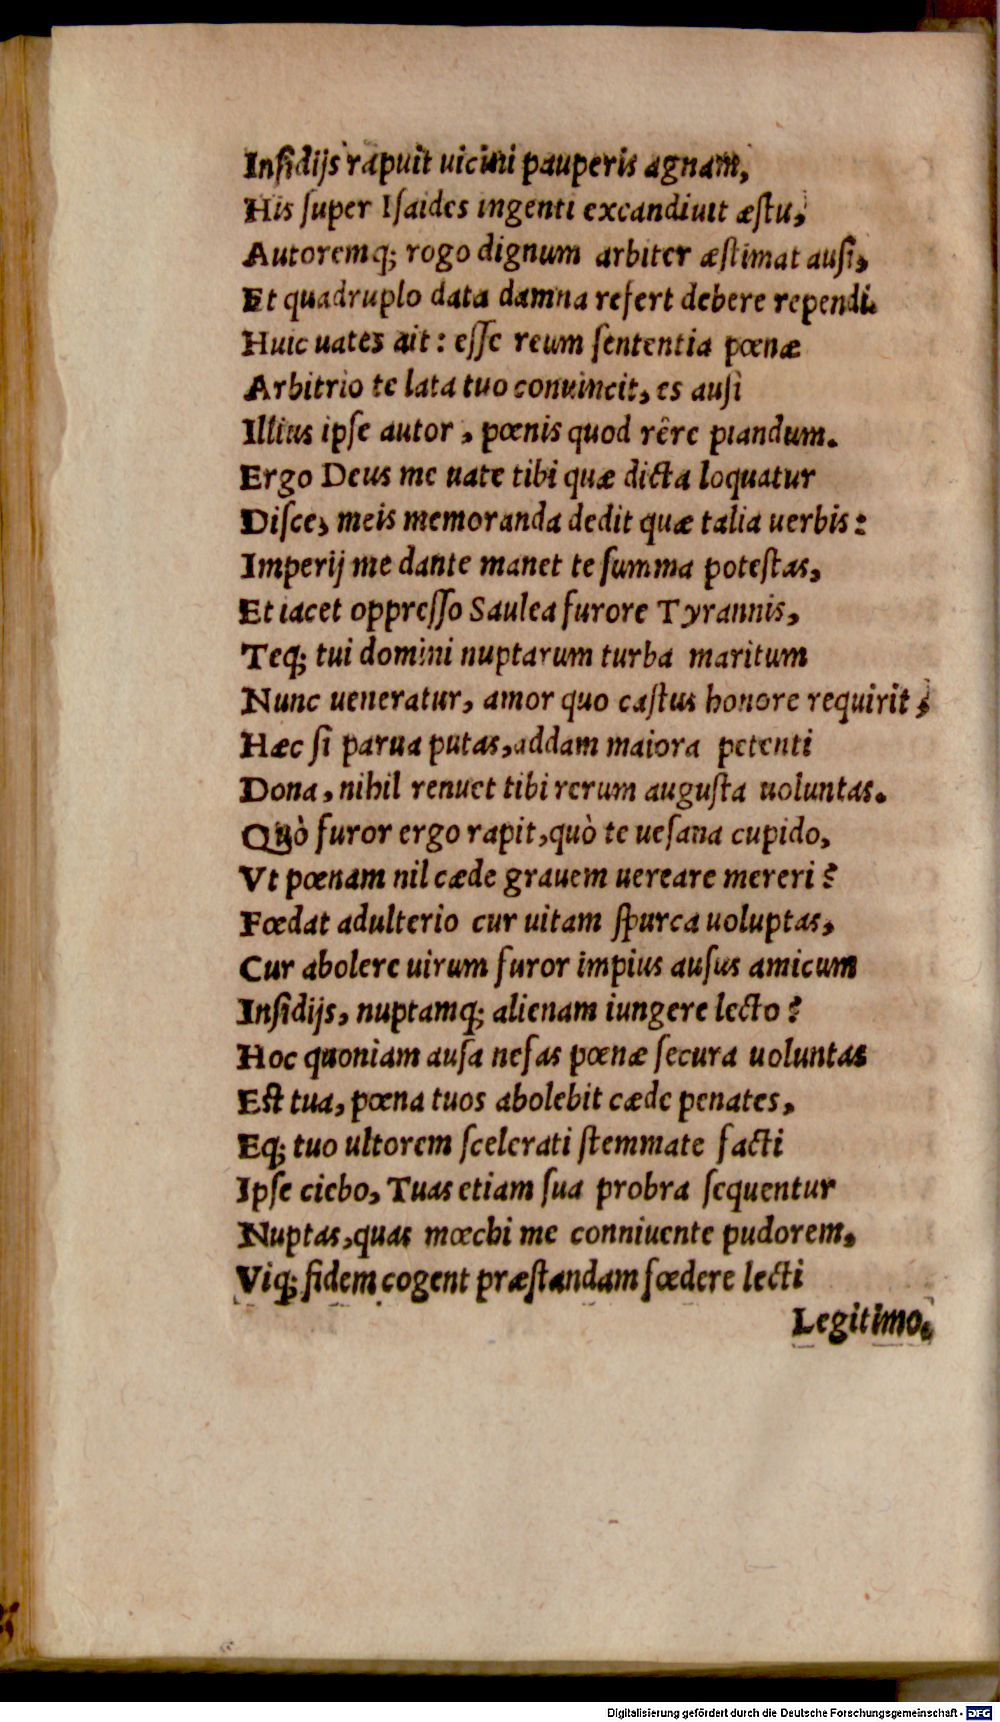 Inſidijs rapuit uicini pauperis agnam,
His ſuper Iſaides ingenti excandiuit æſtu,
Autoremq; rogo dignum arbiter æſtimat auſi,
Et quadruplo data damna refert debere rependi.
Huic uates ait: eſſe reum ſententia pœnæ
Arbitrio te lata tuo conuincit, es auſi
Illius ipſe autor, pœnis quod rêre piandum.
Ergo Deus me uate tibi quæ dicta loquatur
Diſce, meis memoranda dedit quæ talia uerbis:
Imperij me dante manet te ſumma poteſtas,
Et iacet oppreſſo Saulea furore Tyrannis,
Teq; tui domini nuptarum turba maritum
Nunc ueneratur, amor quo caſtus honore requirit;
Hæc ſi parua putas, addam maiora petenti
Dona, nihil renuet tibi rerum auguſta uoluntas.
Quò furor ergo rapit, quò te ueſana cupido,
Vt pœnam nil cæde grauem uereare mereri?
Fœdat adulterio cur uitam ſpurca uoluptas,
Cur abolere uirum furor impius auſus amicum
Inſidijs, nuptamq; alienam iungere lecto?
Hoc quoniam auſa nefas pœnæ ſecura uoluntas
Eſt tua, pœna tuos abolebit cæde penates,
Eq; tuo ultorem ſcelerati ſtemmate facti
Ipſe ciebo, Tuas etiam ſua probra ſequentur
Nuptas, quas mœchi me conniuente pudorem,
Viq; fidem cogent præſtandam fœdere lecti
Legitimo.
Digitalisierung gefördert durch die Deutsche Forschungsgemeinschaft - DFG